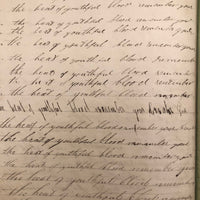 the heat of youthful blood remember you
the heat of youthful blood remember you
the heat of youthful blood remember you
the heat of youthful blood remember your
the heat of youthful blood remember
the heat of youthful blood remember
the heat of youthful blood remember
the heat of youthful blood remember
heat of youthful blood remember you
the heat of youthful blood remember your
the heat of youthful blood remember you
the heat of youthful blood remember you
the heat of youthful blood remember you
the heat of youthful blood remember
the heat of youthful blood remember